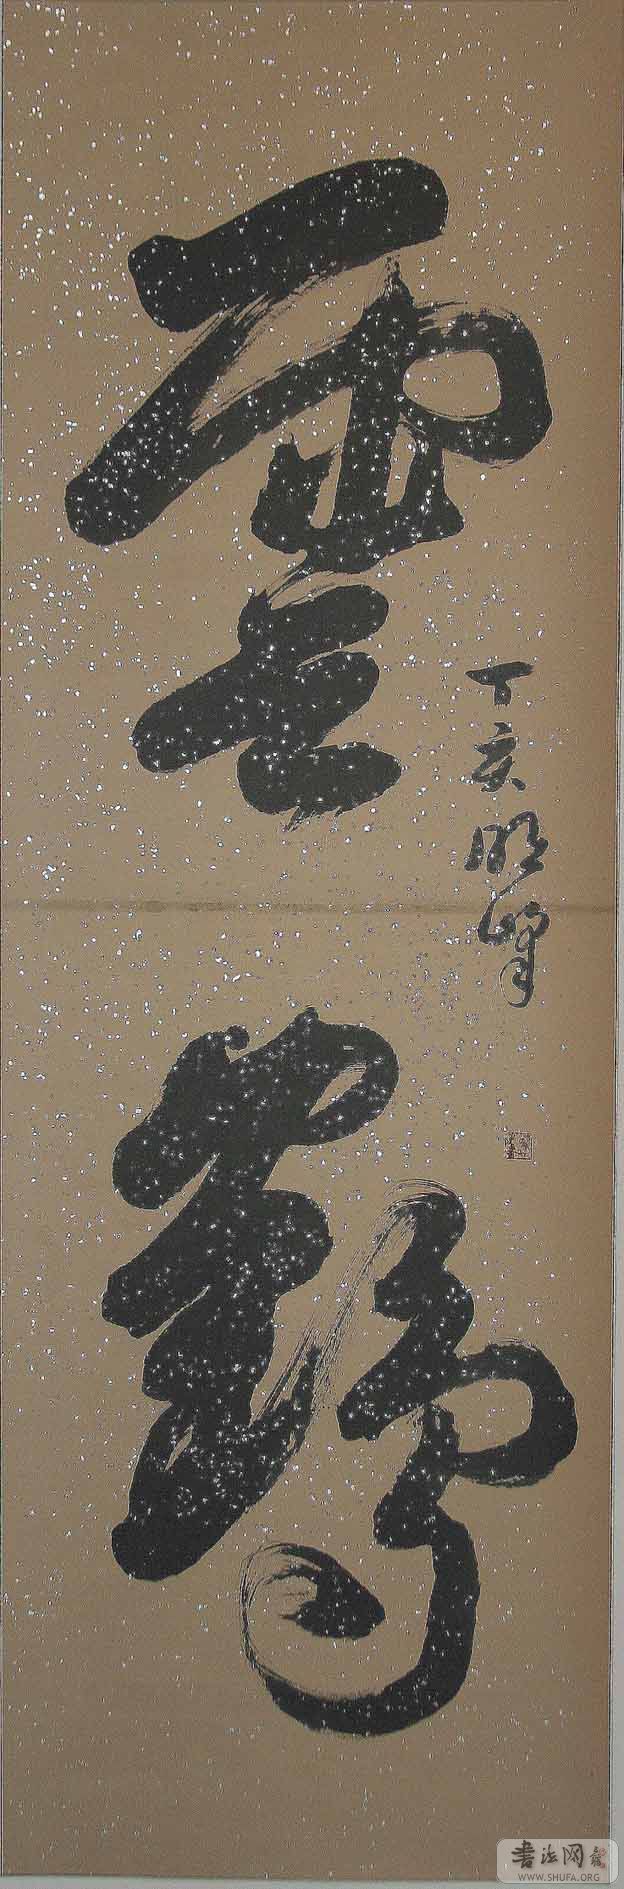 雲鹤
丁亥明峰
书法网
WWW.SHUFA.ORG